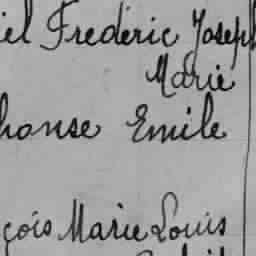 iel Frédéric Joseph
Marie
honse Emile
çois Marie Louis